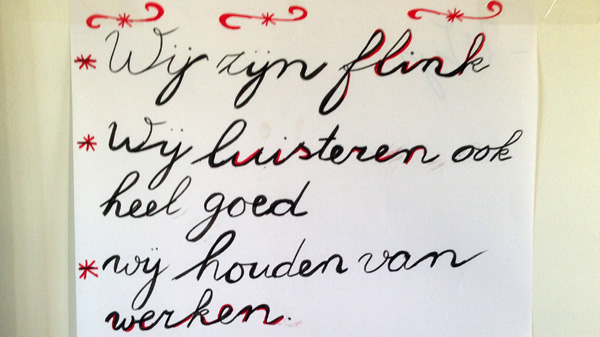 * Wij zijn flink
* Wij luisteren ook
heel goed
* wij houden van
werken.